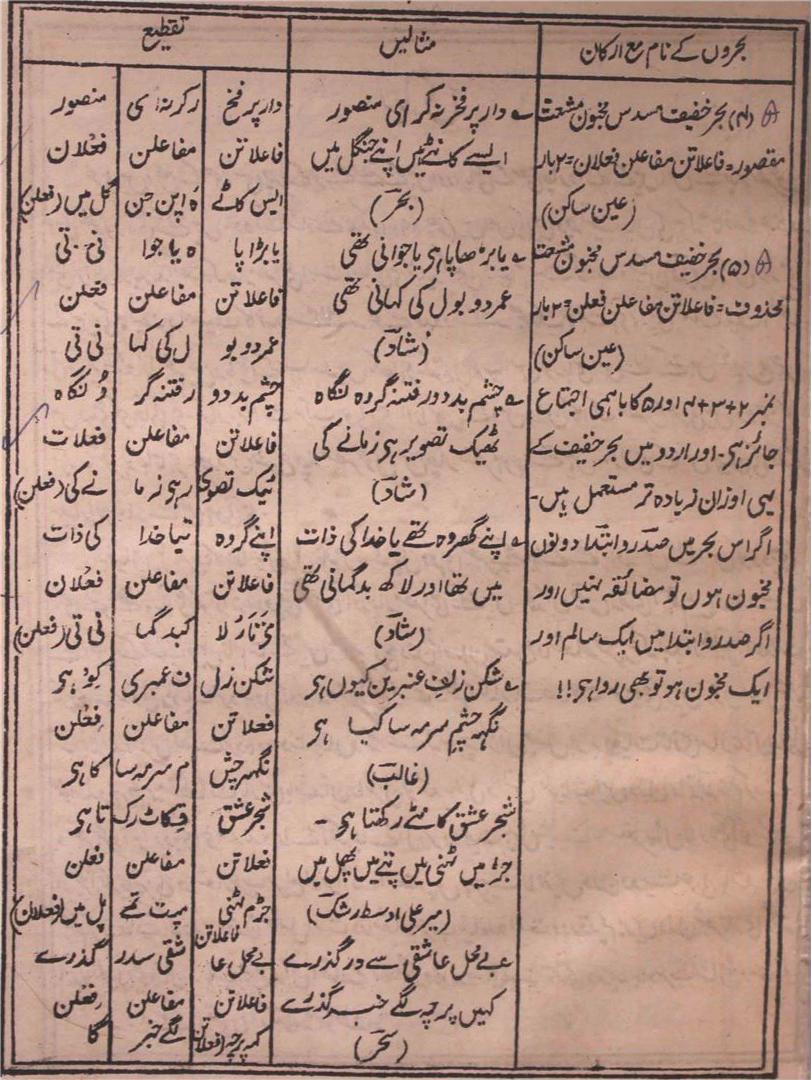 بحروں کے نام مع ارکان
مثالیں
تقطیع
(۴) بحر خفیف مسدس مخبون مشعث
مقصور = فاعلاتن مفاعلن فعلان = ۲ بار
(عین ساکن)
(۵) بحر خفیف مسدس مخبون مشعث
محذوف = فاعلاتن مفاعلن فعلن = ۲ بار
(عین ساکن)
نمبر ۲ + ۳ + ۴ اور ۵ کا باہمی اجتماع
جائز ہی۔ اور اردو میں بحر خفیف کے
یہی اوزان زیادہ تر مستعمل ہیں۔
اگر اس بحر میں صدر و ابتدا دونوں
مخبون ہوں تو مضائقہ نہیں اور
اگر صدر و ابتدا میں ایک سالم اور
ایک مخبون ہو تو بھی روا ہی!!
دار پر فخر نہ کر ای منصور
ایسے کانٹے ہیں اپنے جنگل میں
(بحر)
یا بڑھاپا ہی یا جوانی تھی
عمر دو بول کی کہانی تھی
(شاد)
چشم بد دور فتنہ گر وہ نگاہ
ٹھیک تصویر ہی زمانے کی
(شاد)
اپنے گھر وہ تھے یا خدا کی ذات
میں تھا اور لاکھ بدگمانی تھی
(شاد)
شکن زلف عنبریں کیوں ہی
نگہ چشم سرمہ سا کیا ہی
(غالب)
شجر عشق کانٹے رکھتا ہی۔
جڑ میں ٹہنی میں پتے میں پھل میں
(میر علی اوسط رشک)
بے محل عاشقی سے در گذرے
کہیں پرچہ لگے خبر گذرے
(سحر)
دار پر فخ رکرنہ ای منصور
فاعلاتن مفاعلن فعلان
ایس کاٹے ہَ اپن جن گل میں (فعلن)
یا بڑا پا ہ یا جوا نی تی
فاعلاتن مفاعلن فعلن
عمر دو بو ل کی کہا نی تی
چشم بد دو رفتنہ گر وُ نگاہ
فاعلاتن مفاعلن فعلات
ٹیک تصوی رہی زما نے کی (فعلن)
اپنے گروہ تیاخدا کی ذات
فاعلاتن مفاعلن فعلان
کبد گما نی تی (فعلن)
شکن زل ف عمبری کوُ ہی
فعلاتن مفاعلن فعلن
نگہ چش م سرمہ سا کا ہی
شجر عشق قِکاٹ رک تا ہی
فعلاتن مفاعلن فعلن
جڑم ٹہنی مپت تے پل میں (فعلان)
فاعلاتن
بے محل عا شقی سدر گذرے
فاعلاتن مفاعلن فعلن
کہ پرچہ (فعلاتن) لگے خبر گا